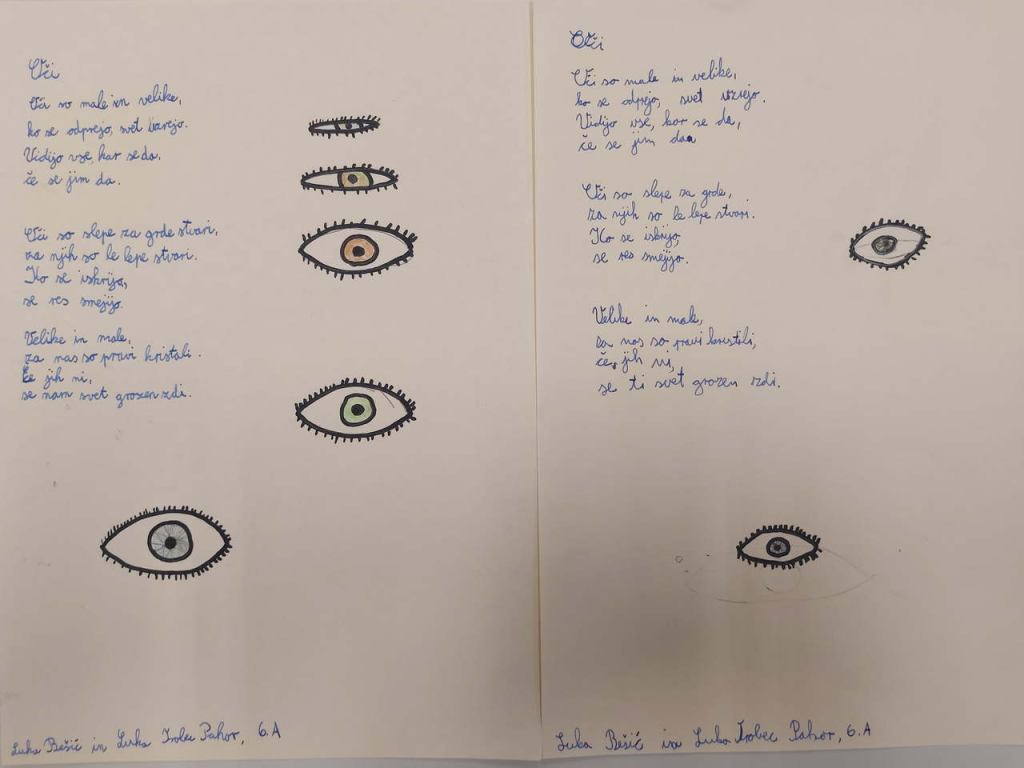 Oči
Oči so male in velike,
ko se odprejo, svet uzrejo.
Vidijo vse, kar se da,
če se jim da.
Oči so slepe za grde stvari,
za njih so le lepe stvari.
Ko se iskrijo,
se res smejijo.
Velike in male,
za nas so pravi kristali.
Če jih ni,
se nam svet grozen zdi.
Luka Bešić in Luka Trobec Pahor, 6.A
Oči
Oči so male in velike,
ko se odprejo, svet uzrejo.
Vidijo vse, kar se da,
če se jim daa
Oči so slepe za grde,
za njih so le lepe stvari.
Ko se iskrijo,
se res smejijo.
Velike in male,
za nas so pravi kristili,
če jih ni,
se ti svet grozen zdi.
Luka Bešić in Luka Trobec Pahor, 6.A